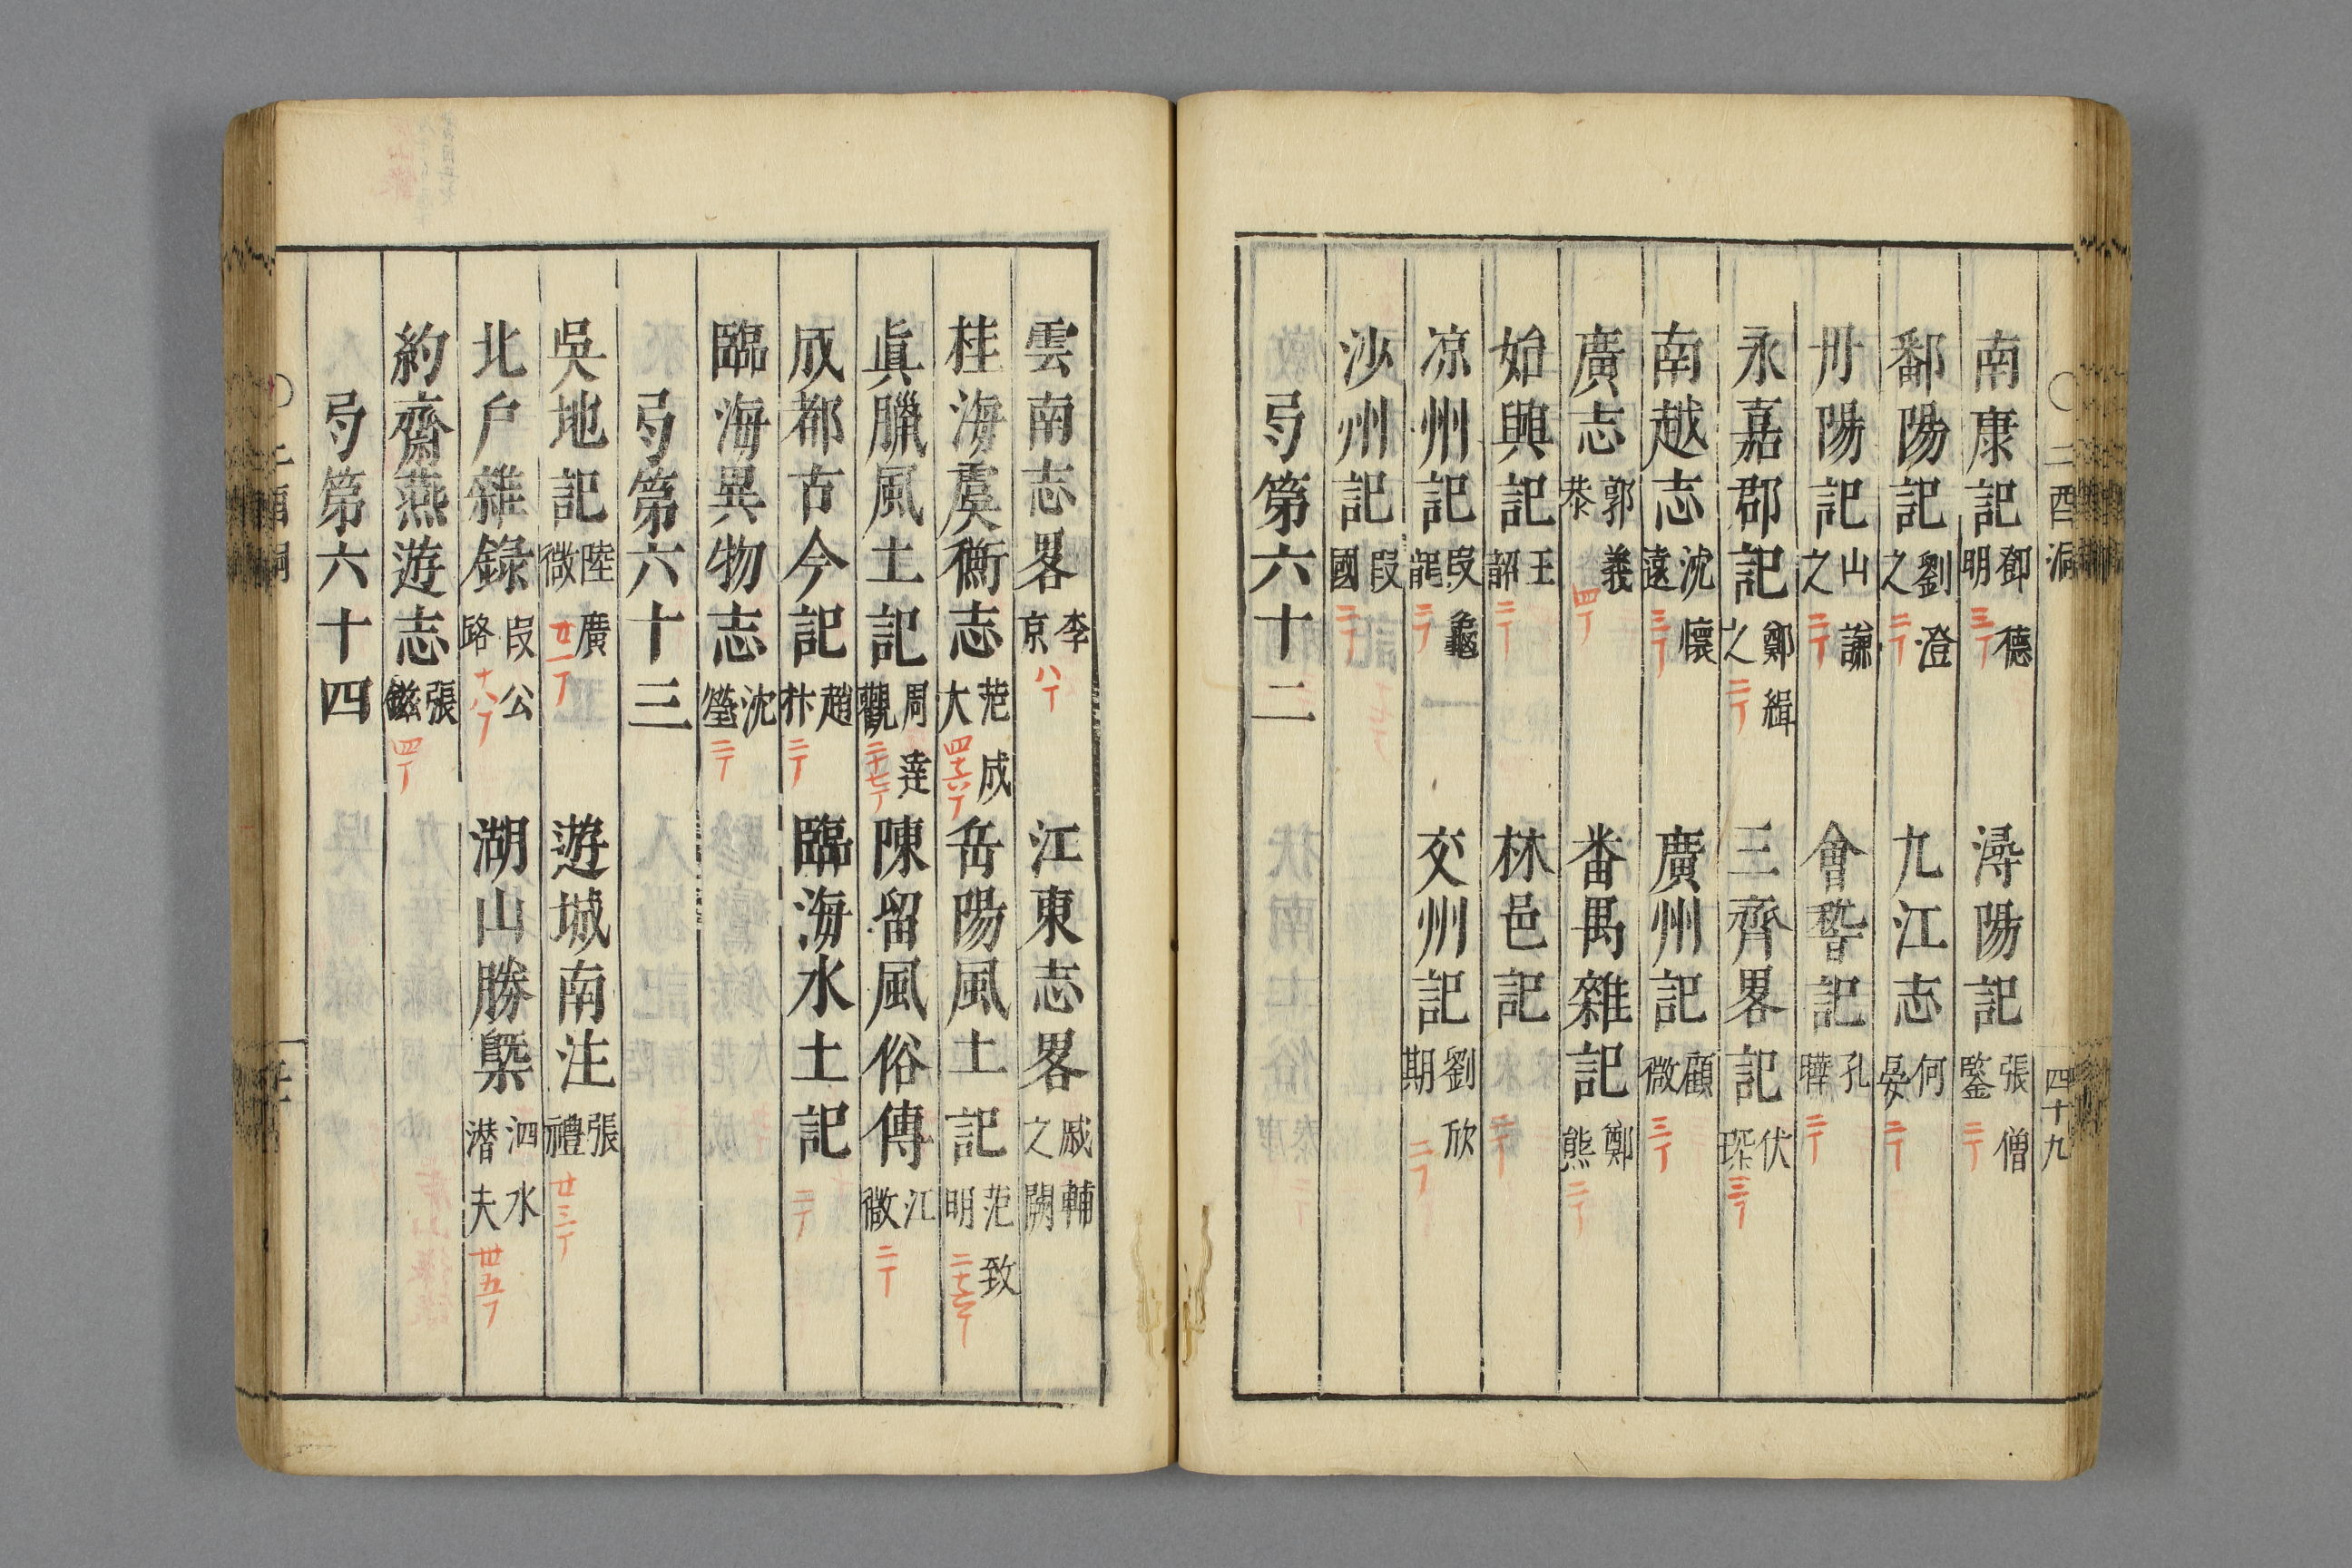 二酉洞 四十九
南康記 鄧德明 三丁 潯陽記 張僧鑒 二丁
鄱陽記 劉澄之 二丁 九江志 何晏 二丁
丹陽記 山謙之 二丁 會稽記 孔曄 二丁
永嘉郡記 鄭緝之 二丁 三齊畧記 伏琛 三丁
南越志 沈懷遠 三丁 廣州記 顧微 三丁
廣志 郭義恭 四丁 番禺雜記 鄭熊 二丁
始興記 王韶 二丁 林邑記 二丁
凉州記 段龜龍 二丁 交州記 劉欣期 二丁
沙州記 段國 二丁
弓第六十二
雲南志畧 李京 八丁 江東志畧 戚輔之 開
桂海虞衡志 范成大 四十六丁 岳陽風土記 范致明 二十六丁
眞臘風土記 周達觀 二十七丁 陳留風俗傳 江微 二丁
成都古今記 趙抃 二丁 臨海水土記 二丁
臨海異物志 沈瑩 二丁
弓第六十三
吳地記 陸廣微 廿一丁 遊城南注 張禮 廿三丁
北戶雜錄 段公路 十八丁 湖山勝槩 泗水潜夫 卅五丁
約齋燕遊志 張鎡 四丁
弓第六十四